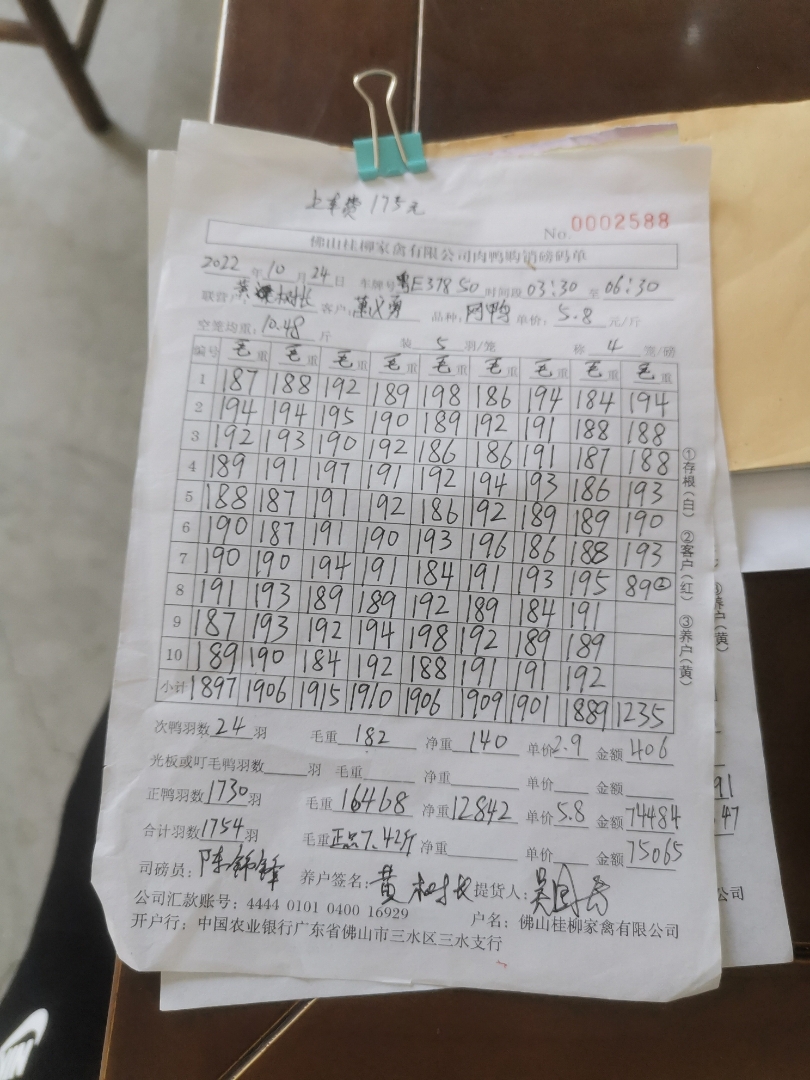 上车费 175元
No 0002588
佛山桂柳家禽有限公司肉鸭购销磅码单
2022年10月24日 车牌号 粤E37850 时间段 03:30 至 06:30
联营户 黄树长 客户: 品种: 单价: 5.8 元/斤
空笼均重: 10.48 斤 装 5 羽/笼 称 4 笼/磅
编号 毛重 毛重 毛重 毛重 毛重 毛重 毛重 毛重 毛重
1 187 188 192 189 198 186 194 184 194
2 194 194 195 190 189 192 191 188 188
3 192 193 190 192 186 186 191 187 188
4 189 191 197 191 192 194 193 186 193
5 188 187 191 192 186 192 189 189 190
6 190 187 191 190 193 196 186 188 193
7 190 190 194 191 184 191 193 195 89②
8 191 193 189 189 192 189 184 191
9 187 193 192 194 198 192 189 189
10 189 190 184 192 188 191 191 192
小计 1897 1906 1915 1910 1906 1909 1901 1889 1235
次鸭羽数 24 羽 毛重 182 净重 140 单价 2.9 金额 406
光板或叮毛鸭羽数 羽 毛重 净重 单价 金额
正鸭羽数 1730 羽 毛重 16468 净重 12842 单价 5.8 金额 74484
合计羽数 1754 羽 毛重 正品7.42斤 净重 单价 金额 75065
司磅员: 陈锦锋 养户签名: 黄树长 提货人:
公司汇款账号: 4444 0101 0400 16929 户名: 佛山桂柳家禽有限公司
开户行: 中国农业银行广东省佛山市三水区三水支行
①存根(白) ②客户(红) ③养户(黄)
养户(黄)
91
.47
公司